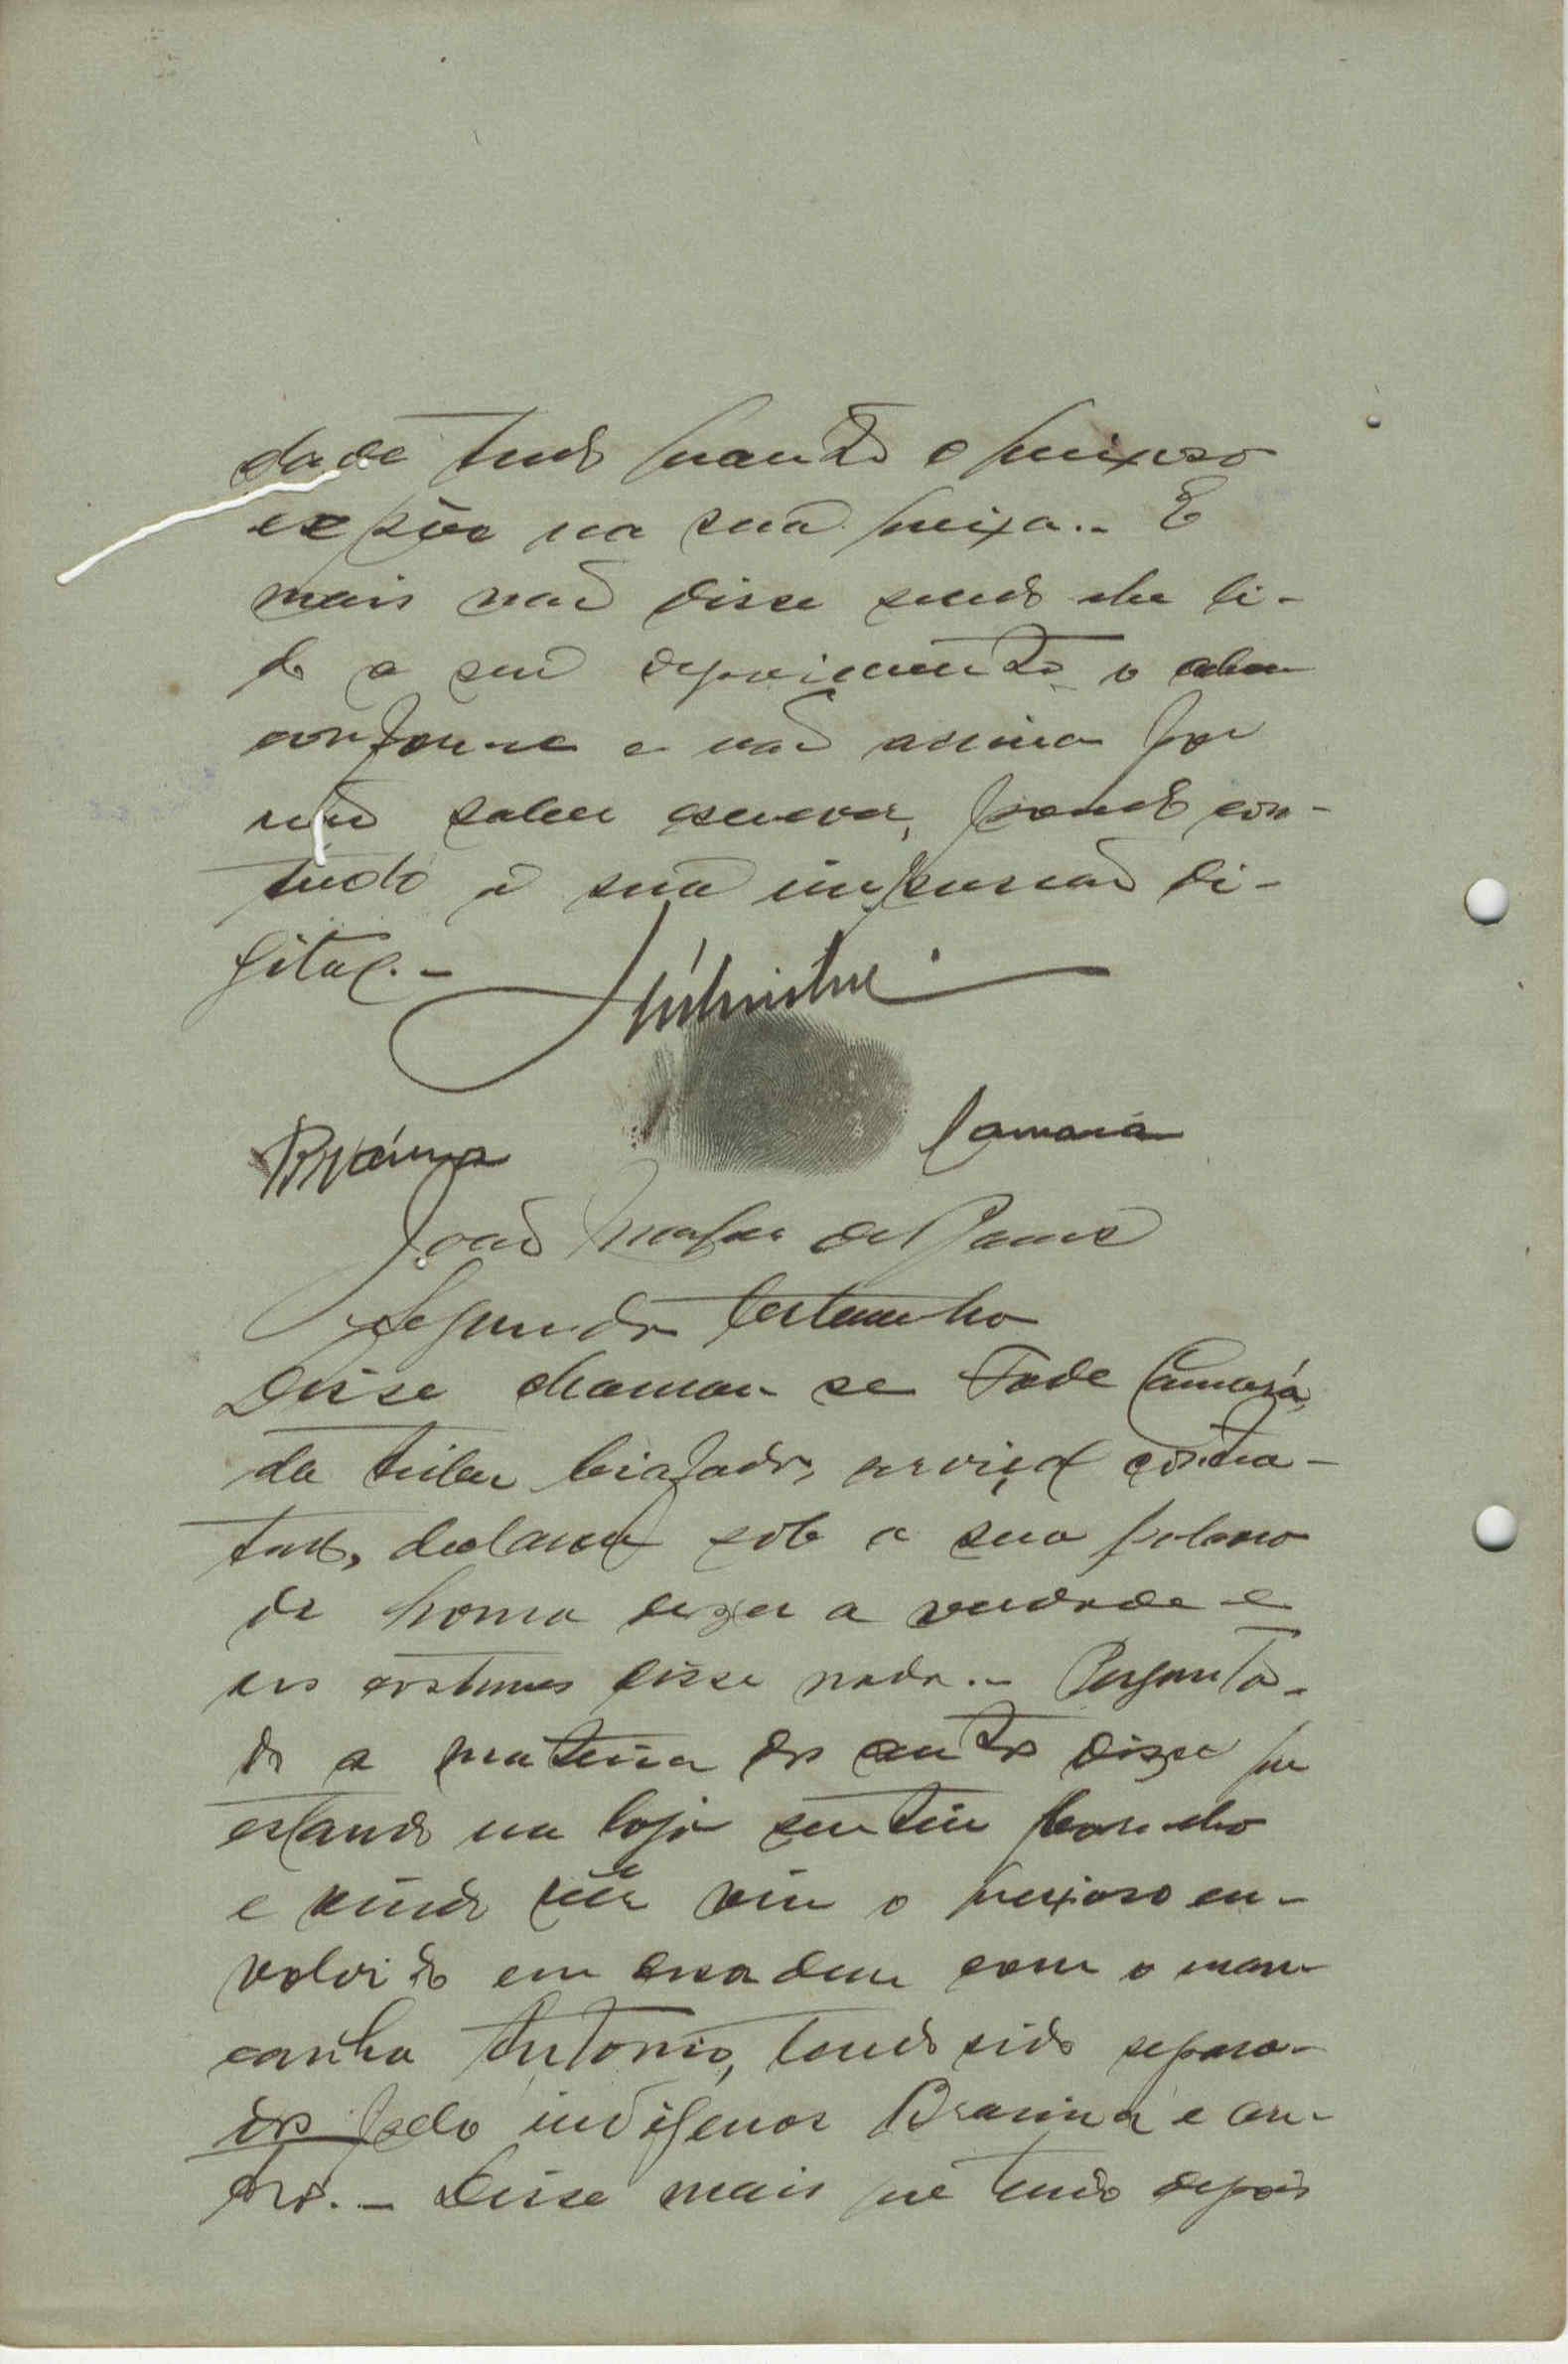 dade tudo quanto o queixoso
expõe na sua queixa.- E
mais não disse sendo lhe li-
do o seu depoimento o achou
conforme e não assina por
não saber escrever, pondo con-
tudo a sua impressão di-
gital.-
Braima Camará
João de
Segunda testemunha
Disse chamar-se Fode Camará,
da tribu biafada, serviçal contra-
tado, declarou sob a sua palavra
de honra dizer a verdade e
aos costumes disse nada.- Pergunta-
do a materia do auto disse que
estando na loja sentiu barulho
e vindo vêr viu o queixoso en-
volvido em desordem com o man-
canha Antonio, tendo sido separa-
dos pelo indigenas Braima e ou-
tro.- Disse mais que tendo depois